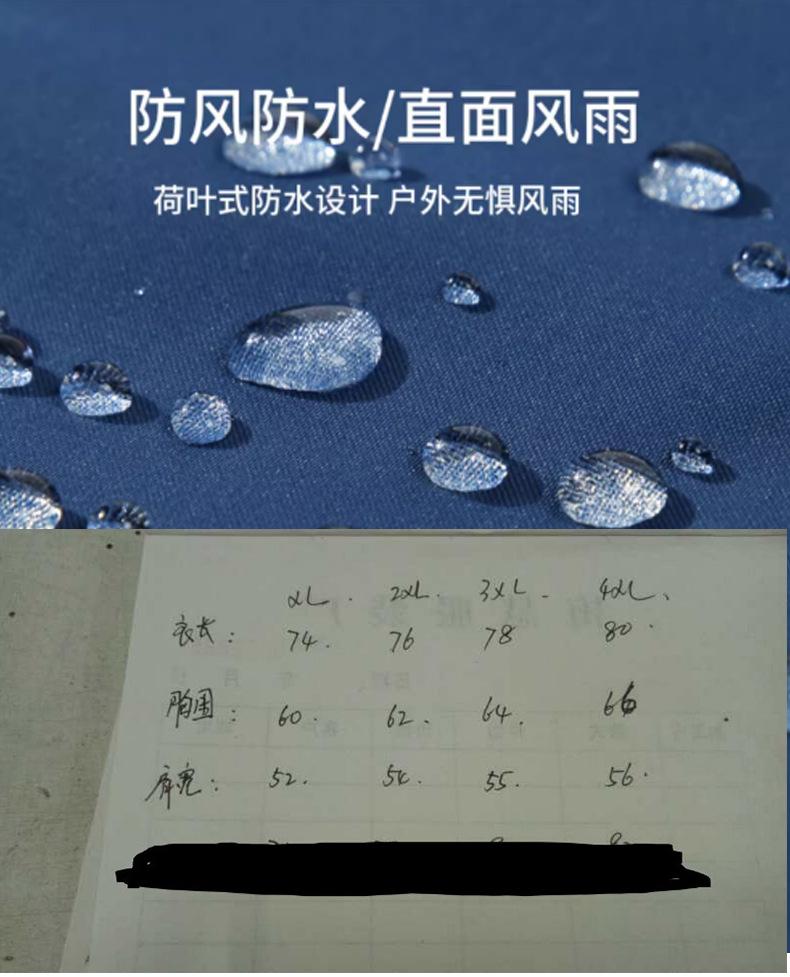 防风防水/直面风雨
荷叶式防水设计 户外无惧风雨
XL. 2XL. 3XL. 4XL.
衣长: 74. 76 78 80.
胸围: 60. 62. 64. 66
肩宽: 52. 54. 55. 56.